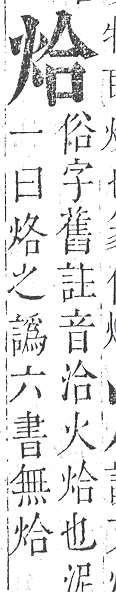 烚
俗字舊註音洽火烚也泥
一曰烙之譌六書無烚